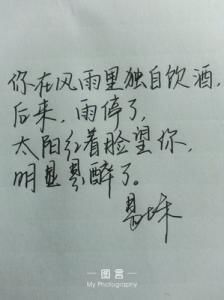 你在风雨里独自饮酒，
后来，雨停了，
太阳红着脸望你，
明显是醉了。
一 图言 一
My Photography